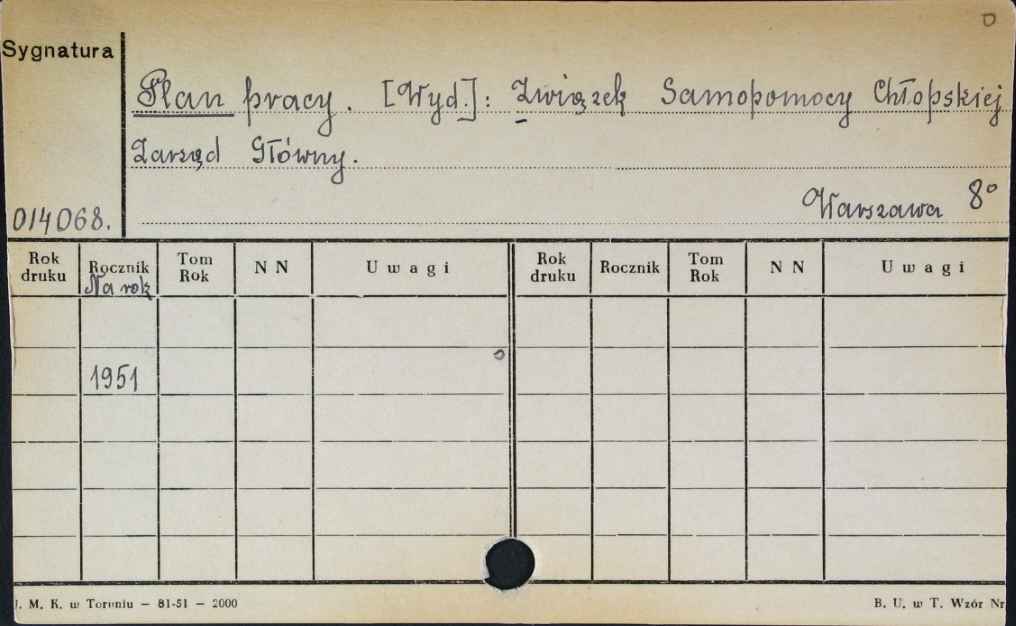 Sygnatura
Plan pracy. [Wyd.]: Związek Samopomocy Chłopskiej
Zarząd Główny.
Warszawa 8°
014068.
Rok druku Rocznik Na rok Tom Rok N N Uwagi Rok druku Rocznik Tom Rok N N Uwagi
1951
J. M. K. w Toruniu — 81-51 — 2000 B. U. w T. Wzór Nr